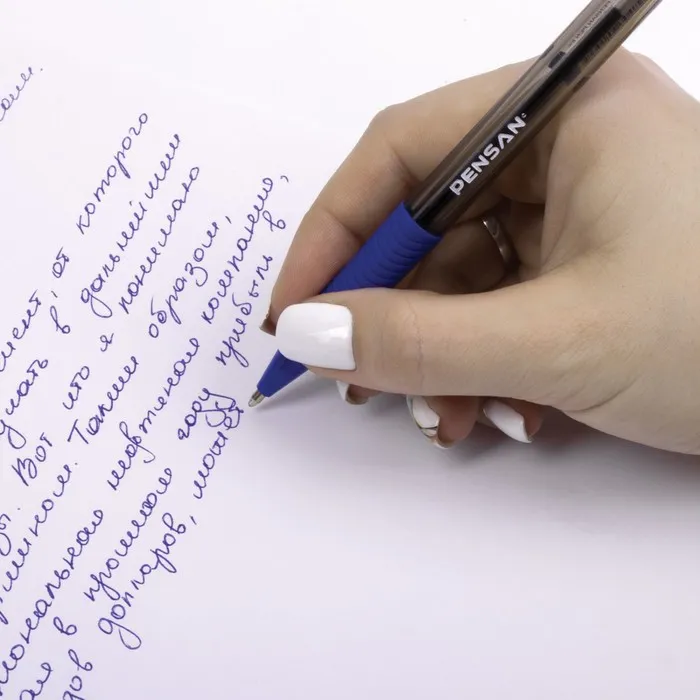 мент, от которого
в дальнейшем
Вот что я понимаю
Таким образом,
иональная нефтяная компания,
ая в прошлом году прибыль в
дов долларов, может
PENSAN